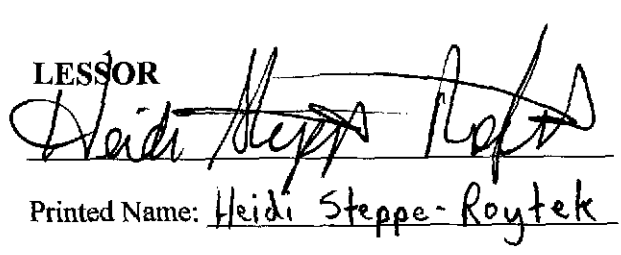 LESSOR
Heidi Steppe Roytek
Printed Name: Heidi Steppe-Roytek